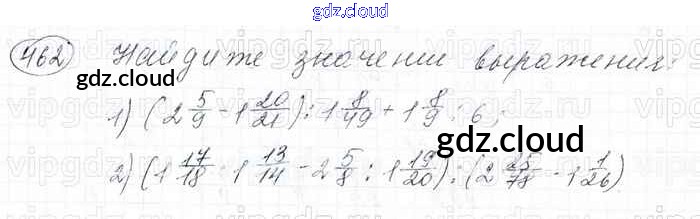 gdz.cloud
462) Найдите значении выражения:
gdz.cloud
1) (2 5/9 - 1 20/21) : 1 8/49 + 1 8/9 : 6;
gdz.cloud
2) (1 17/18 · 1 13/14 - 2 5/8 : 1 19/20) : (2 25/78 - 1 1/26)